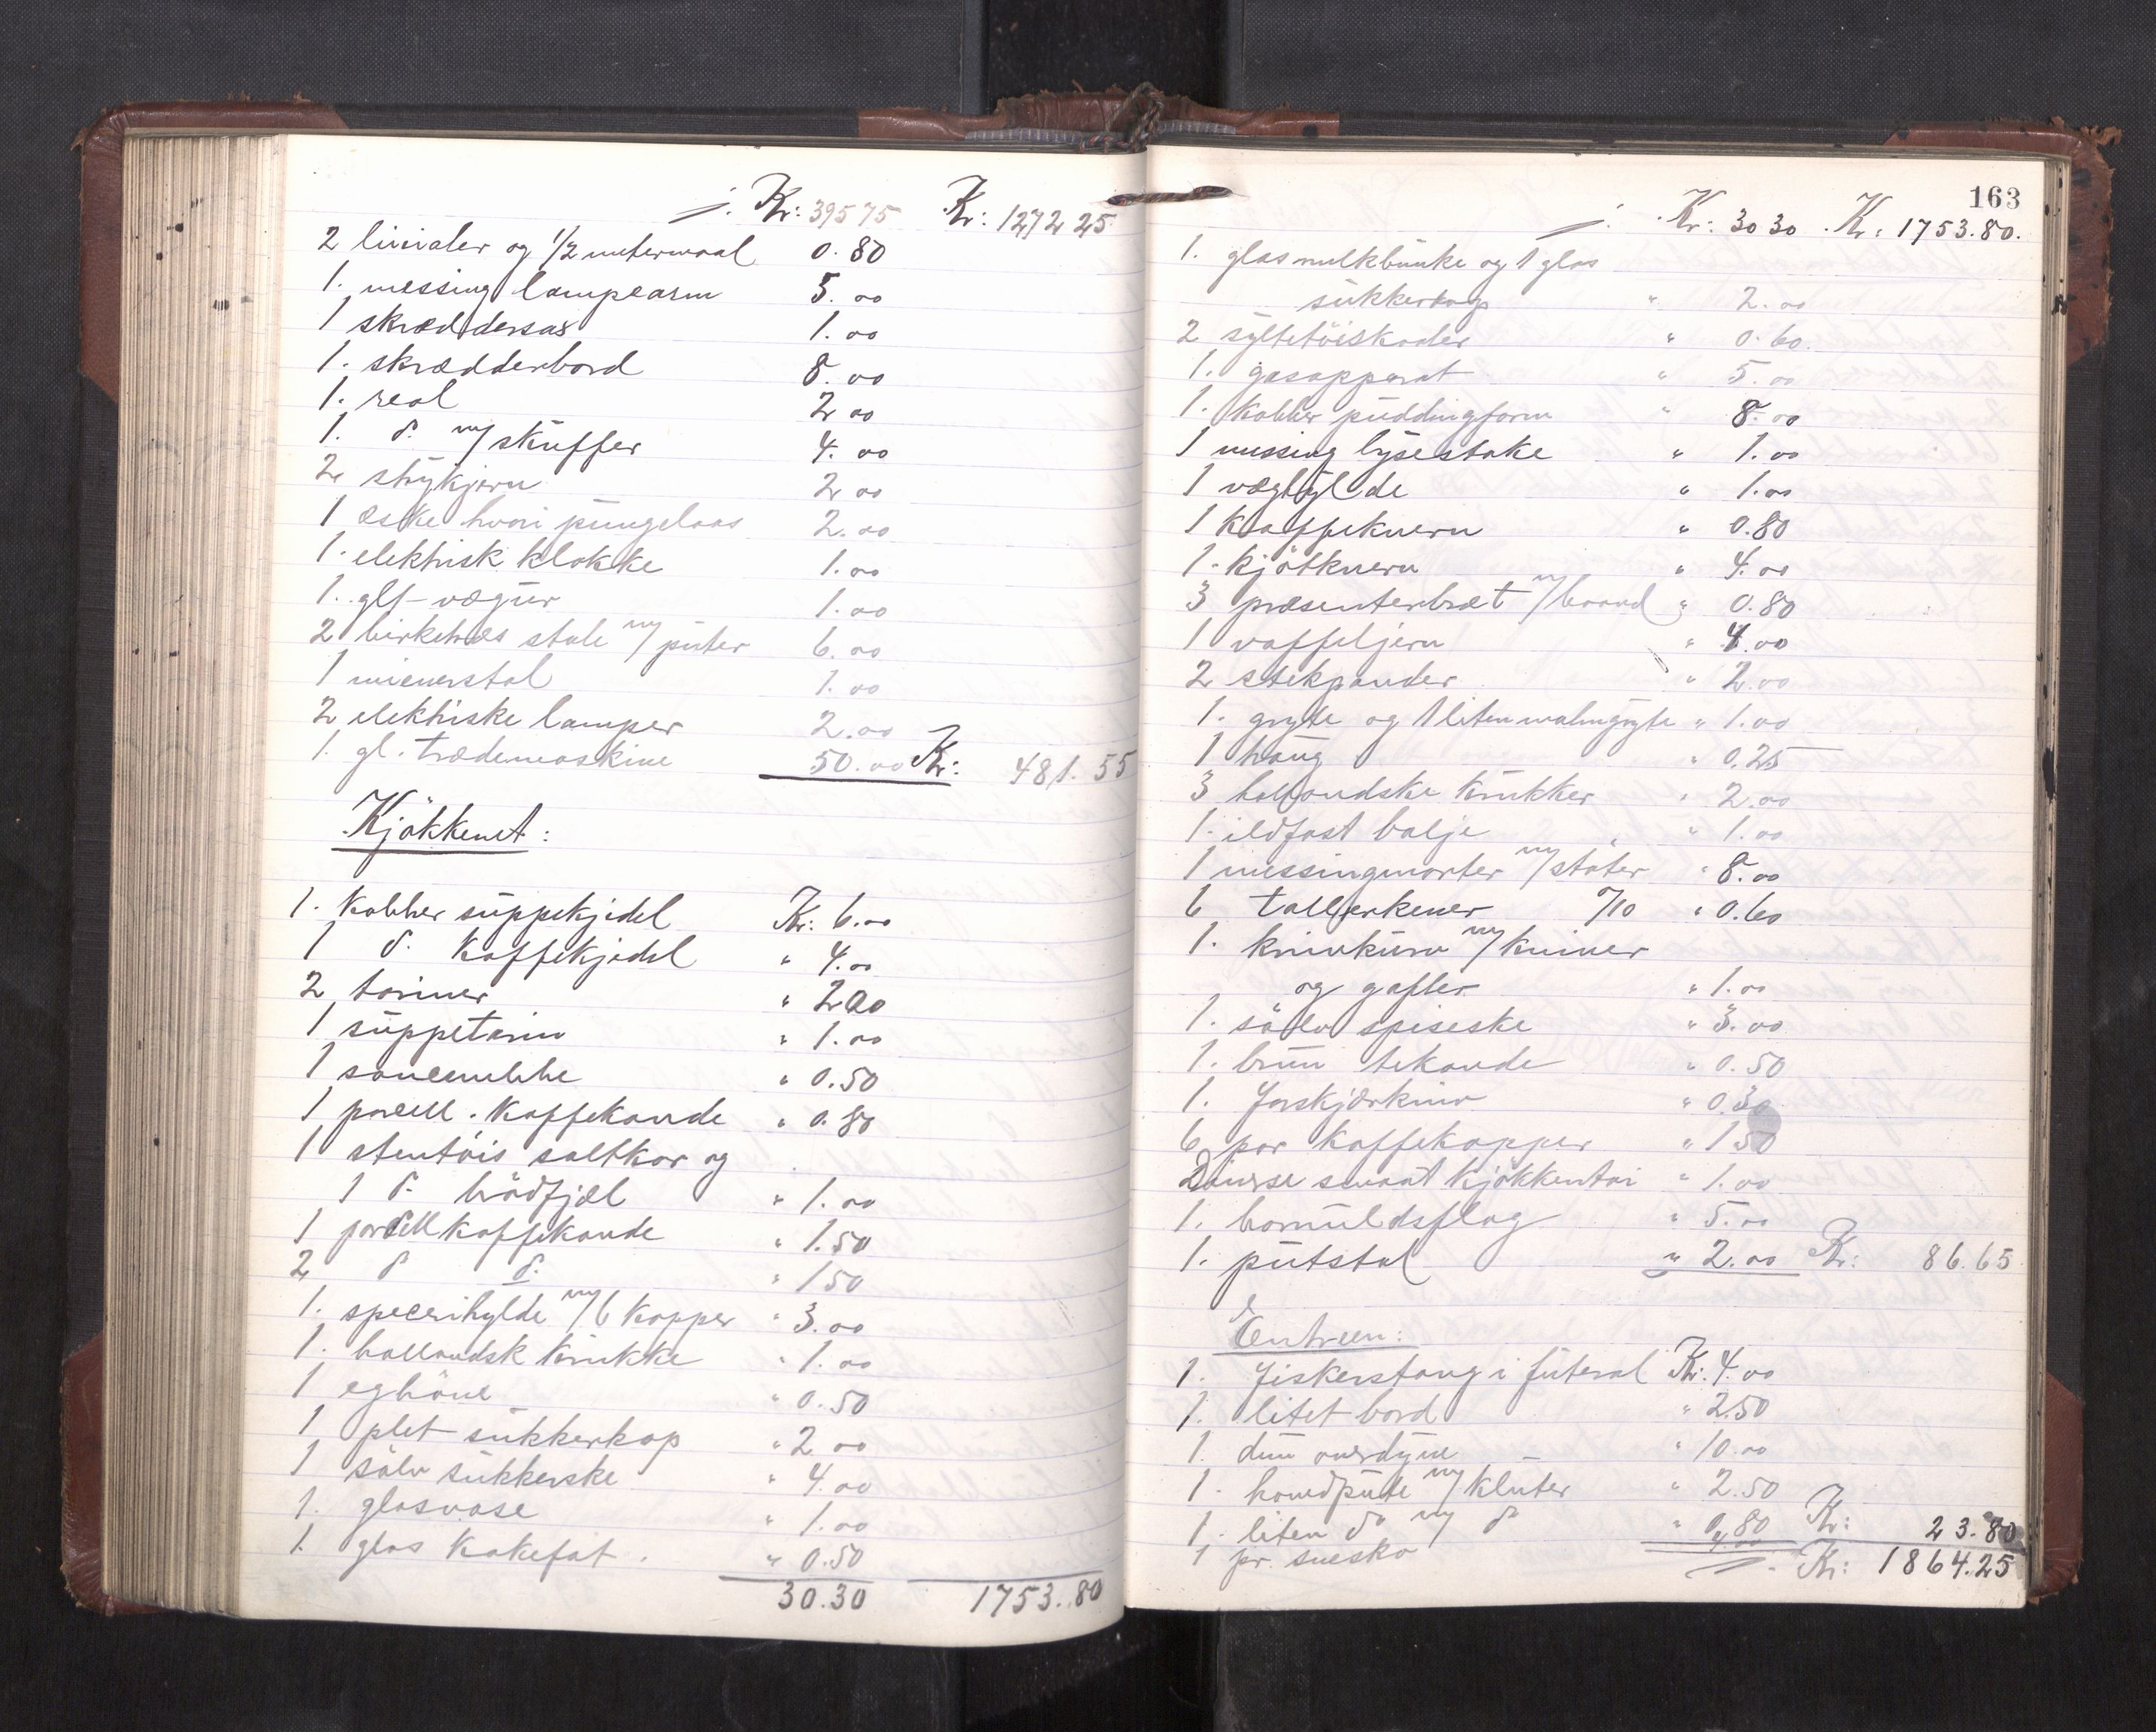 ./. Kr: 395 75 Kr: 1272 25
2 linialer og 1/2 metermaal 0.80
1. messing lampearm 5.00
1 skræddersax 1.00
1. skrædderbord 8.00
1. real 2 00
1. do. m/skuffer 4.00
2 strykjern 2 00
1 æske hvori pungelaas 2.00
1. elektrisk klokke 1.00
1. glt vægur 1.00
2 birketræs stole m/ puter 6.00
1 wienerstol 1.00
2 elektriske lamper 2.00
1. gl. trædemaskine 50.00 Kr: 481.55
Kjökkenet:
1. Kobber suppekjedel Kr: 6.00
1 do. Kaffekjedel " 4.00
2 teriner " 2.00
1 suppeterin " 1.00
1 saucenebbe " 0.50
1 porcell. Kaffekande " 0.80
1 stentöis saltkar og
1 do. brödfjæl " 1.00
1 porcell kaffekande " 1.50
2 do do. " 1 50
1. specerihylde m/6 Kopper " 3.00
1. hollandsk krukke " 1.00
1 eghöne " 0.50
1 plet sukkerkop " 2 00
1 sölv sukkerske " 4.00
1. glasvase " 1.00
1. glas Kakefat. " 0.50
30.30 1753.80
163
./. Kr: 30 30 Kr: 1753.80.
1. glas melkbunke og 1 glas
sukkerkop " 2.00
2 syltetöiskaaler " 0.60.
1. gasapparat " 5.00
1. Kobber puddingform " 8.00
1 messing lysestake " 1.00
1 væghylde " 1.00
1 Kaffekvern " 0.80
1. kjötkvern " 4.00
3 præsenterbræt m/baand " 0.80
1 vaffeljern " 4.00
2 stekpander " 2.00
1. gryte og 1 liten malmgryte " 1.00
1 hang " 0.25
3 hollandske krukker " 2.00
1. ildfast balje " 1.00
1 messingmorter m/stöter " 8.00
6 tallerkener à/10 " 0.60
1. knivkurv m/kniver
og gafler " 1.00
1. sölv spiseske " 3.00
1. brun tekande " 0.50
1. forskjærkniv " 0.30
6 par kaffekopper " 1 50
Diverse smaat kjökkentöi " 1.00
1. bomuldsflag " 5.00
1. putstol " 2.00 Kr: 86.65
Entreen:
1. fiskerstang i futeral Kr: 4.00
1. litet bord " 2.50
1. dun overdyne " 10.00
1. hovedpute m/kluter " 2.50
1. liten do m/ do " 0.80 Kr: 23.80
1 pr. snesko " 4.00
./. Kr: 1864.25